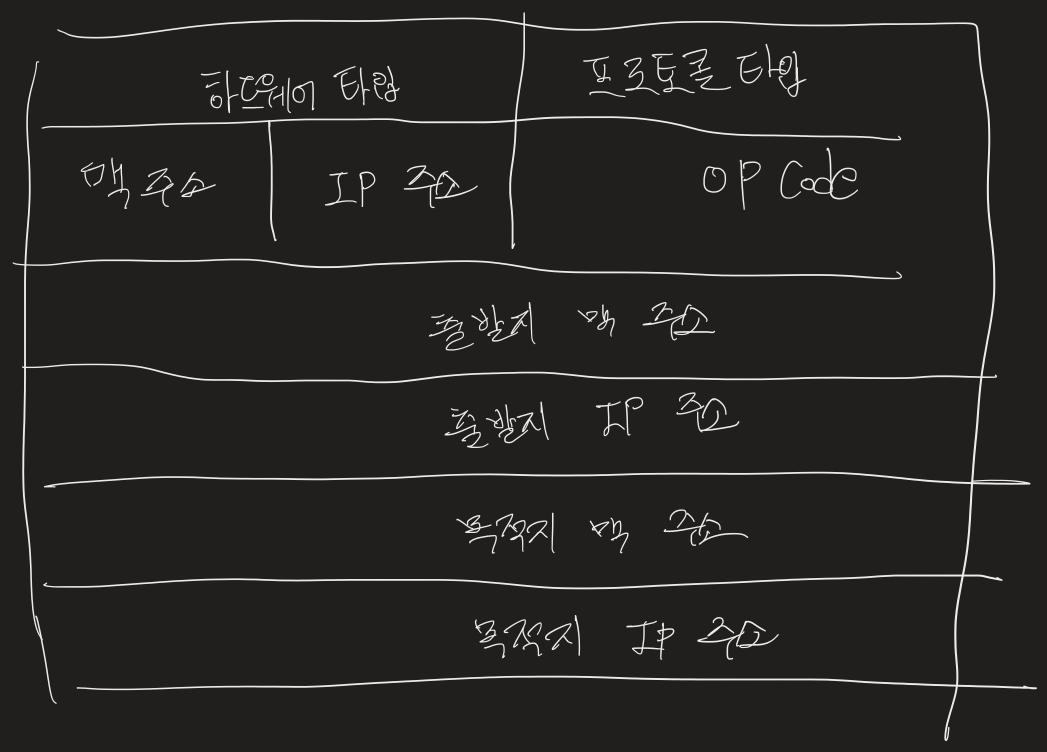 하드웨어 타입 프로토콜 타입
맥 주소 IP 주소 OP Code
출발지 맥 주소
출발지 IP 주소
목적지 맥 주소
목적지 IP 주소